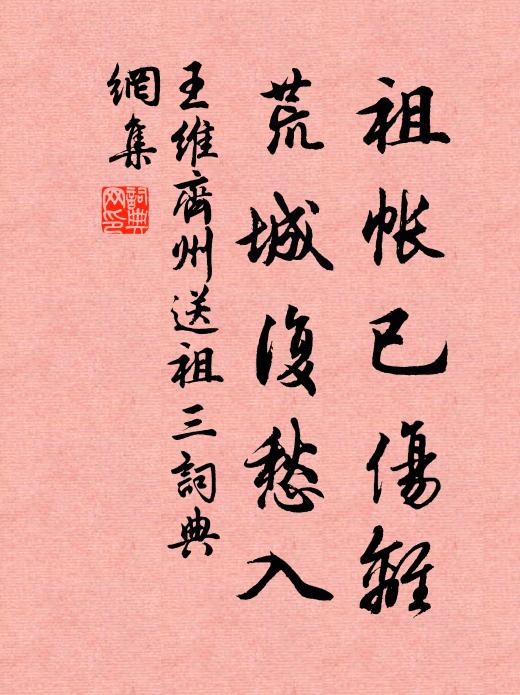 祖帐已傷離
荒城復愁入
王維齊州送祖三詞典
網集
詞典网印